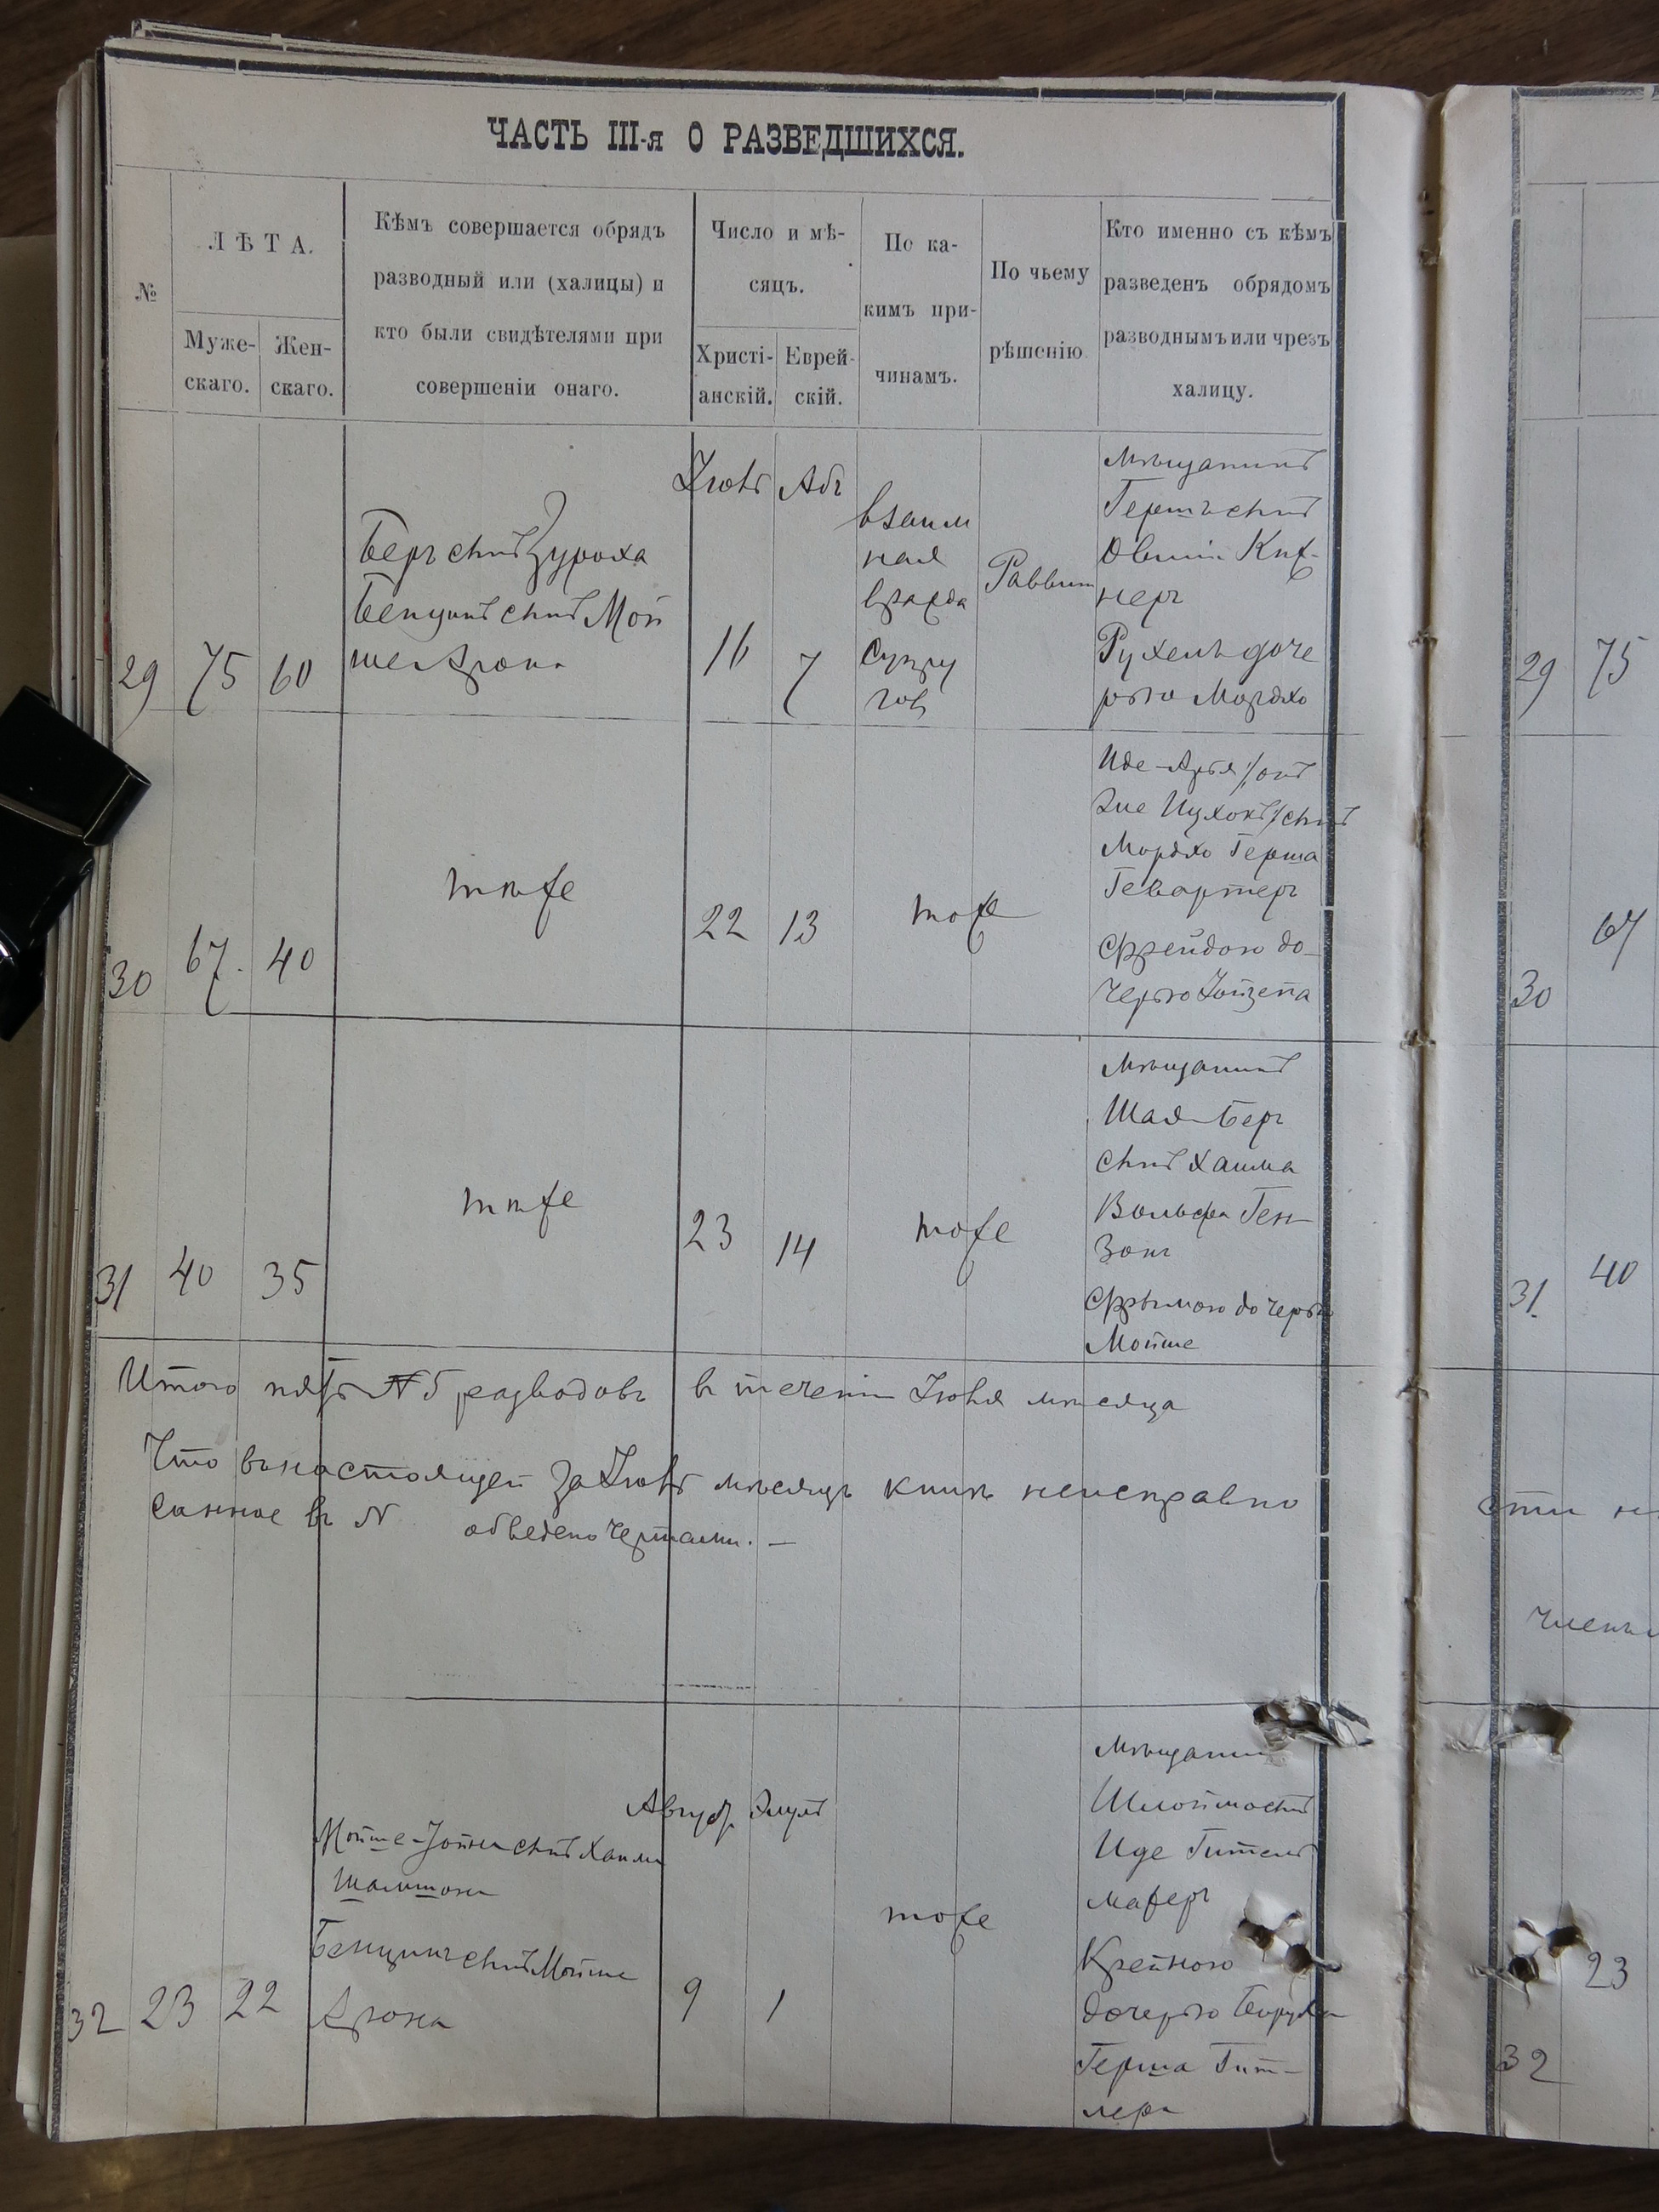 ЧАСТЬ III-я О РАЗВЕДШИХСЯ.
№
ЛѢТА.
Муже-
скаго.
Жен-
скаго.
Кѣмъ совершается обрядъ
разводный или (халицы) и
кто были свидѣтелями при
совершеніи онаго.
Число и мѣ-
сяцъ.
Христі-
анскій.
Еврей-
скій.
По ка-
кимъ при-
чинамъ.
По чьему
рѣшенію
Кто именно съ кѣмъ
разведенъ обрядомъ
разводнымъ или чрезъ
халицу.
29
75
60
Беръ сынъ
Бенционъ сынъ Мой
ше Арона
Іюль
16
Абъ
7
взаим
ная
вражда
супру
говъ
Раввин
мѣщанинъ
Гершъ сынъ
неръ
Рухель доче
рью Мордхо
30
67
40
тоже
22
13
тоже
Мордхо Герша
Гевартеръ
Фрейдою до-
черью
31
40
35
тоже
23
14
тоже
мѣщанинъ
Шая-Беръ
сынъ Хаима
Вольфа Ген-
зонъ
Фрымою дочерью
Мойше
Итого пять № 5 разводовъ въ теченіи Іюля мѣсяца
Что въ настоящей за Іюль мѣсяцъ книгѣ неисправно
санное въ № обведено чертами. —
32
23
22
сынъ Хаима
Шамшона
Бенционъ сынъ Мойше
Арона
Август
9
Элулъ
1
тоже
мѣщанин
Шлойма сынъ
Иде Гитель
махеръ
Крейною
дочерью Боруха
Герша Гит-
лера
29
75
30
67
31
40
сти
члены
32
23